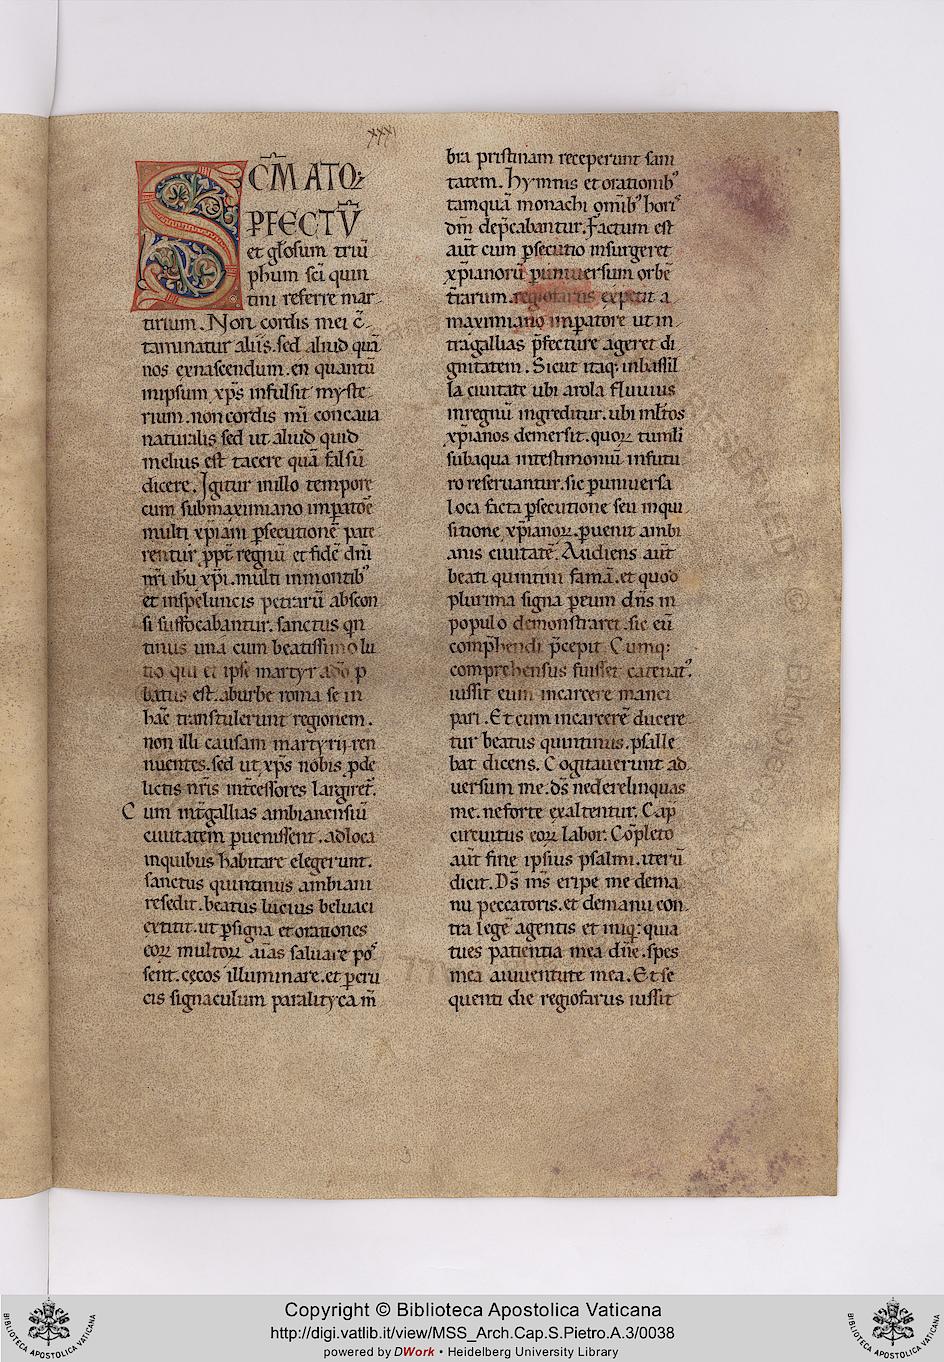 xxxi
SCM̄ ATQ;
PFECTV̄
et gl̄osum triū
phum sc̄i quin
tini referre mar
tirium. Non cordis mei c̄
taminatur aliis. sed aliud quā
nos exnascendum. en quantū
inipsum xp̄s infulsit myste
rium. non cordis mī concaua
naturalis sed ut aliud quid
melius est tacere quā falsū
dicere. Igitur inillo tempore
cum submaximiano imp̄atoē
multi xp̄iam p̄secutionē pate
rentur p̄pt̄ regnū et fidē dn̄i
nr̄i ihu xp̄i. multi inmontib⁹
et inspeluncis petrarū abscon
si suffocabantur. sanctus qn
tinus una cum beatissimo lu
tio qui et ipse martyr ado p
batus est. aburbe roma se in
hāc transtulerunt regionem.
non illi causam martyrii ren
nuentes. sed ut xp̄s nobis p̄de
lictis nr̄is int̄cessores largiret᷑.
Cum int̄gallias ambianensiū
ciuitatem puenissent. adloca
inquibus habitare elegerunt.
sanctus quintinus ambiani
resedit. beatus lucius beluaci
extitit. ut p̄signa et orationes
eoꝝ multoꝝ aīas saluare pos
sent. cęcos illuminare. et p̄cru
cis signaculum paralityca m̄
bra pristinam receperunt sani
tatem. hymnis et orationib⁹
tamquā monachi omib⁹ horis
dm̄ dep̄cabantur. Factum est
aut̄ cum p̄secutio insurgeret
xp̄ianorū p̄uniuersum orbē
t̄rarum. regiofarus expetit a
maximiano imp̄atore ut in
tragallias p̄fecture ageret di
gnitatem. Sicut itaq; inbassil
la ciuitate ubi arola fluuius
inregnū ingreditur. ubi ml̄tos
xp̄ianos demersit. quoꝝ tumli
subaqua intestimoniū infutu
ro reseruantur. sic puniuersa
loca facta p̄secutione seu inqui
sitione xp̄ianoꝝ. puenit ambi
anis ciuitatē. Audiens aut̄
beati quintini famā. et quod
plurima signa p̄eum dn̄s in
populo demonstraret. sic eū
comp̄hendi p̄cepit. Cumq;
comprehensus fuisset catenat⁹.
iussit eum incarcere manci
pari. Et cum incarcerē ducere
tur beatus quintinus. psalle
bat dicens. Cogitauerunt ad
uersum me. ds̄ nederelinquas
me. neforte exaltentur. Cap̄
circuitus eoꝝ labor. Cōpleto
aut̄ fine ipsius psalmi. iterū
dicit. Ds̄ ms̄ eripe me dema
nu peccatoris. et demanu con
tra legē agentis et iniq; quia
tu es patientia mea dn̄e. spes
mea aiuuentute mea. Et se
quenti die regiofarus iussit
Copyright © Biblioteca Apostolica Vaticana
http://digi.vatlib.it/view/MSS_Arch.Cap.S.Pietro.A.3/0038
powered by DWork • Heidelberg University Library
BIBLIOTECA APOSTOLICA VATICANA
BIBLIOTECA APOSTOLICA VATICANA